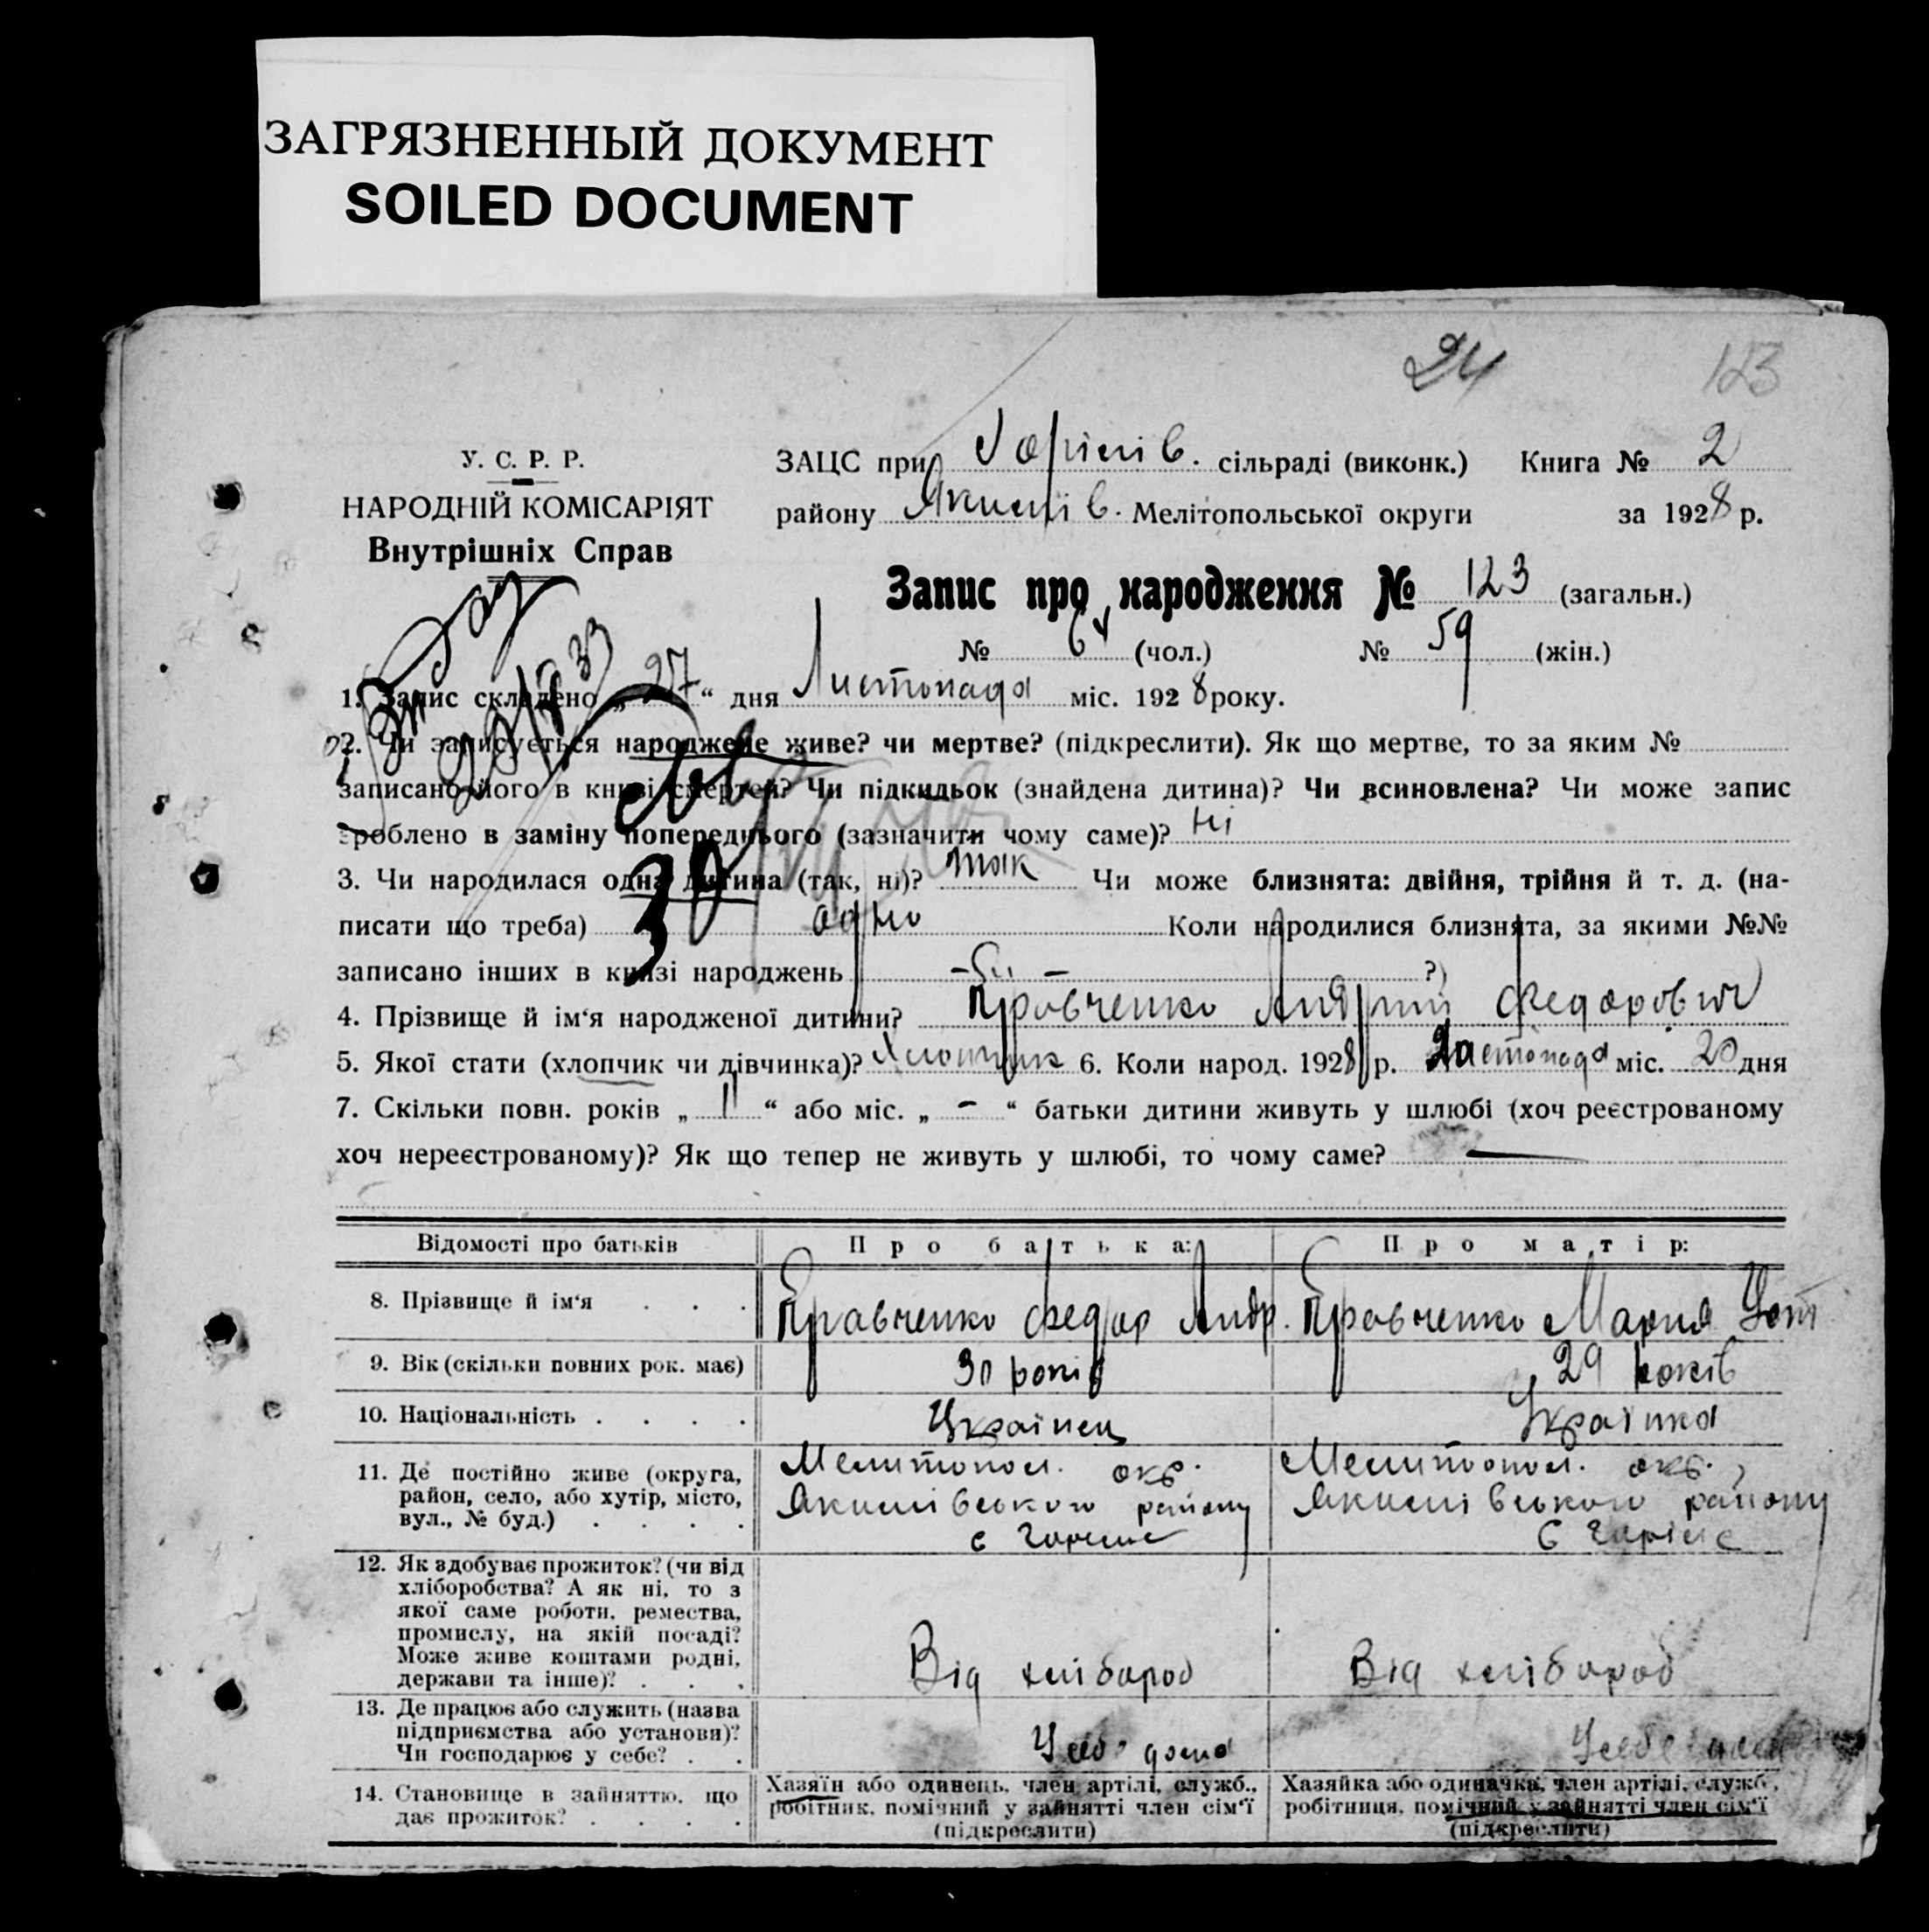 ЗАГРЯЗНЕННЫЙ ДОКУМЕНТ
SOILED DOCUMENT
24 123
У. С. Р. Р.
НАРОДНІЙ КОМІСАРІЯТ
Внутрішніх Справ
ЗАЦС при сільраді (виконк.) Книга № 2
району Якимів. Мелітопольської округи за 1928 р.
Запис про народження № 123 (загальн.)
№ (чол.) № 59 (жін.)
1. Запис складено „27“ дня Листопада міс. 1928 року.
2. Чи записується народжене живе? чи мертве? (підкреслити). Як що мертве, то за яким №
записано його в книзі смертей? Чи підкидьок (знайдена дитина)? Чи всиновлена? Чи може запис
зроблено в заміну попереднього (зазначити чому саме)? Ні
3. Чи народилася одна дитина (так, ні)? так Чи може близнята: двійня, трійня й т. д. (на-
писати що треба) одно Коли народилися близнята, за якими №№
записано інших в книзі народжень ?)
4. Прізвище й ім‘я народженої дитини? Кравченко Андрій Федорович
5. Якої стати (хлопчик чи дівчинка)? Хлопчик 6. Коли народ. 1928 р. Листопада міс. 20 дня
7. Скільки повн. років „11“ або міс. „-“ батьки дитини живуть у шлюбі (хоч реєстрованому
хоч нереєстрованому)? Як що тепер не живуть у шлюбі, то чому саме? —
Відомості про батьків Про батька: Про матір:
8. Прізвище й ім‘я . . . Кравченко Федор Андр. Кравченко Мария Уст
9. Вік (скільки повних рок. має) 30 років 29 років
10. Національність . . . . Українец Українка
11. Де постійно живе (округа,
район, село, або хутір, місто,
вул., № буд.) . . . .
Мелитопол. окр.
Якимівського району
с Горіле
Мелитопол. окр.,
Якимівського району
с Горіле
12. Як здобуває прожиток? (чи від
хліборобства? А як ні, то з
якої саме роботи, ремества,
промислу, на якій посаді?
Може живе коштами родні,
держави та інше)? . . .
Від хлібороб
Від хлібороб
13. Де працює або служить (назва
підприємства або установи)?
Чи господарює у себе? . .
У себе дома
У себе
14. Становище в зайняттю, що
дає прожиток? . . . .
Хазяїн або одинець, член артілі, служб.,
робітник, помічний у зайнятті член сім‘ї
(підкреслити)
Хазяйка або одиначка, член артілі, служб.,
робітниця, помічний у зайнятті член сім‘ї
(підкреслити)